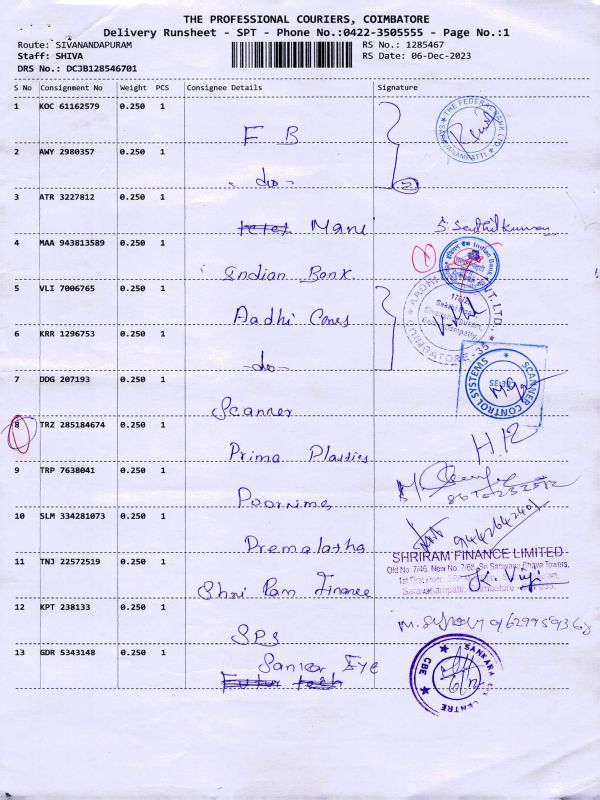 THE PROFESSIONAL COURIERS, COIMBATORE
Delivery Runsheet - SPT - Phone No.:0422-3505555 - Page No.:1
Route: SIVANANDAPURAM RS No.: 1285467
Staff: SHIVA RS Date: 06-Dec-2023
DRS No.: DCJB128546701
S No Consignment No Weight PCS Consignee Details Signature
1 KOC 61162579 0.250 1
F B
THE FEDERAL BANK LTD
SARAVANAMPATTI
2 AWY 2980357 0.250 1
- do - 2
3 ATR 3227812 0.250 1
Mani S. Senthilkumar
4 MAA 943813589 0.250 1
Indian Bank
Indian Bank
5 VLI 7006765 0.250 1
Aadhi Cones
COIMBATORE-35
6 KRR 1296753 0.250 1
- do -
7 DDG 207193 0.250 1
Scanner
SCANNER CONTROL SYSTEMS
8 TRZ 285184674 0.250 1
Prima Plastics
9 TRP 7638041 0.250 1
Poornima
10 SLM 334281073 0.250 1
Premalatha
11 TNJ 22572519 0.250 1
SHRIRAM FINANCE LIMITED
Old No. 7/46, New No. 7/68, Sri Saravana Bhava Towers,
1st First Floor
Saravanampatti, Coimbatore
Shri Ram Finance
12 KPT 238133 0.250 1
SPS
13 GDR 5343148 0.250 1
Sankar Eye
SANKARA EYE CENTRE
CBE